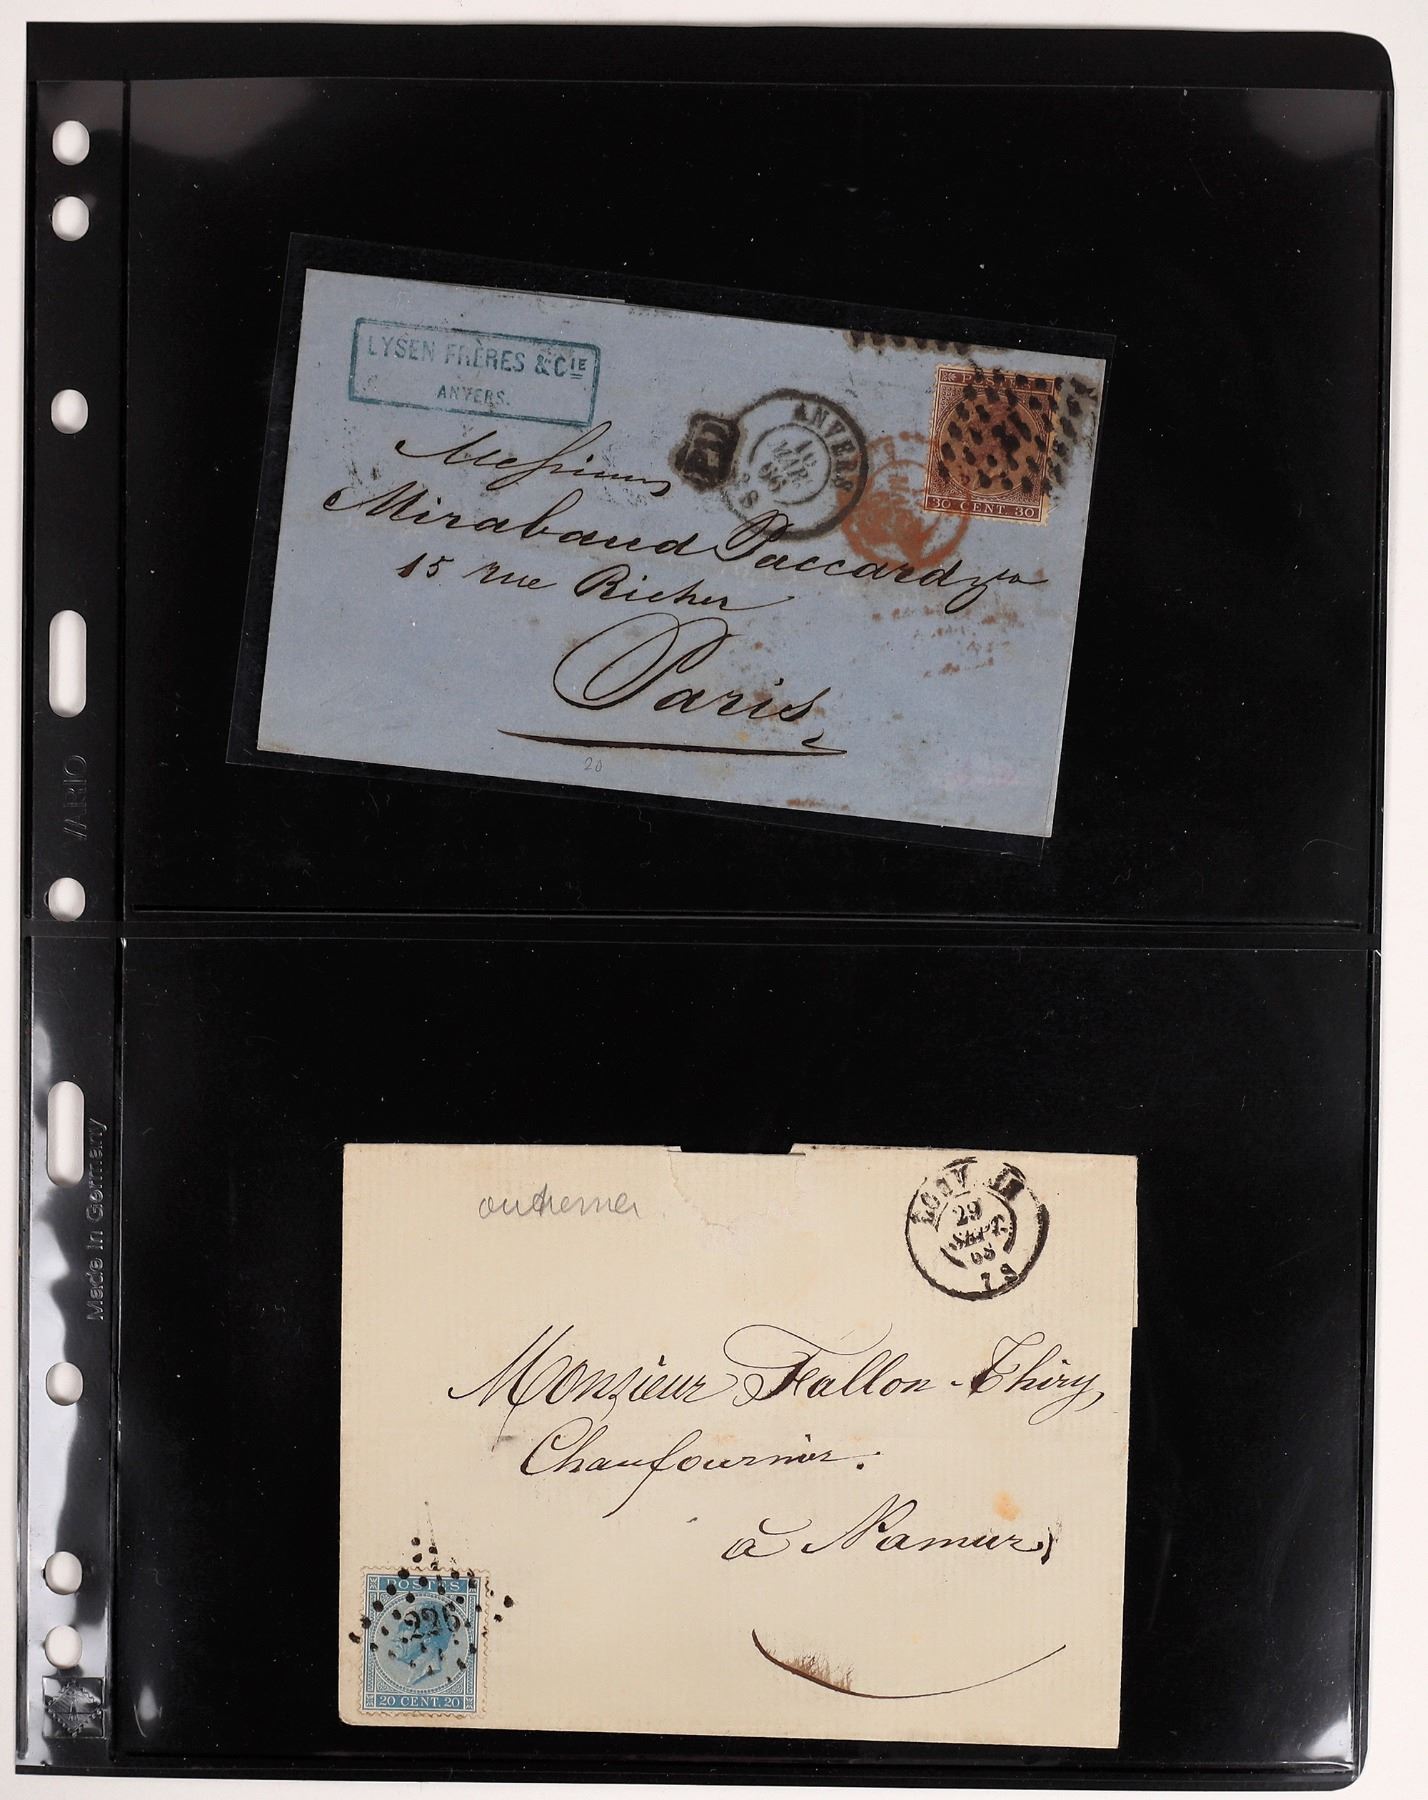 LYSEN FRÈRES & CIE
ANVERS.
PD
ANVERS
10
MAR
66
8 S
POSTES
30 CENT. 30
Messieurs
Mirabaud Paccard & Cie
15 rue Richer
Paris
20
VARIO
LOUVAIN
29
SEPT.
68
7 S
Monsieur Fallon-Thiry,
Chaufournier.
à Namur,
POSTES
226
20 CENT. 20
Made in Germany